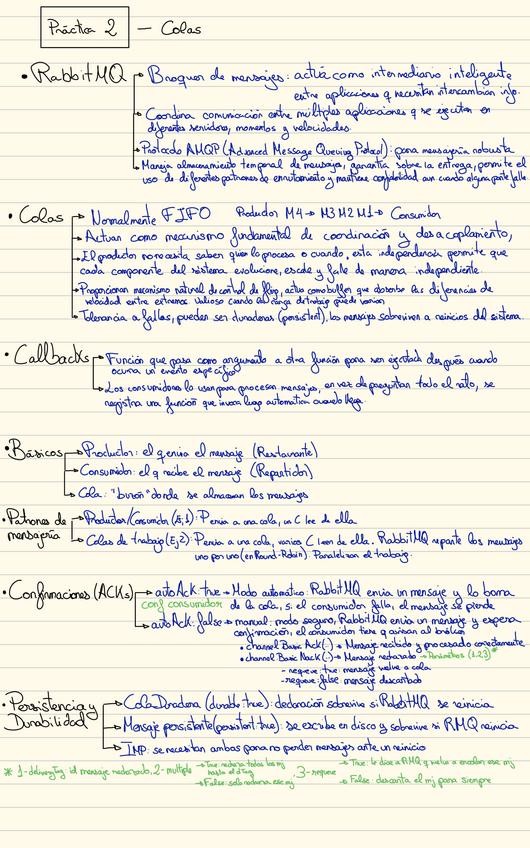 Práctica 2 — Colas
• RabbitMQ → Broquer de mensajes: actúa como intermediario inteligente
entre aplicaciones q necesitan intercambian info.
→ Coordina comunicación entre múltiples aplicaciones q se ejecutan en
diferentes servidores, momentos y velocidades.
→ Protocolo AMQP (Advanced Message Queuing Protocol): para mensajería robusta
→ Maneja almacenamiento temporal de mensajes, garantía sobre la entrega, permite el
uso de diferentes patrones de enrutamiento y mantiene confiabilidad aun cuando alguna parte falle.
• Colas → Normalmente FIFO Productor M4→ M3 M2 M1→ Consumidor
→ Actuan como mecanismo fundamental de coordinación y desacoplamiento,
→ El productor no necesita saber quien lo procesa o cuando, esta independencia permite que
cada componente del sistema evolucione, escale y falle de manera independiente.
→ Proporcionan mecanismo natural de control de flujo, actua como buffer que absorbe las diferencias de
velocidad entre extremos. Valioso cuando la carga de trabajo puede variar
→ Tolerancia a fallas, pueden ser duraderas (persistent), los mensajes sobreviven a reinicios del sistema.
• Callbacks → Función que pasa como argumento a otra función para ser ejecutada después cuando
ocurra un evento específico
→ Los consumidores lo usan para procesar mensajes, en vez de preguntar todo el rato, se
registra una función que invoca luego automatica cuando llega.
• Básicos → Productor: el q envia el mensaje (Restaurante)
→ Consumidor: el q recibe el mensaje (Repartidor)
→ Cola: "buzón" donde se almacenan los mensajes
• Patrones de mensajería → Productor/Consumidor (Ej,1): P envia a una cola, un C lee de ella
→ Colas de trabajo (Ej,2): P envia a una cola, varios C leen de ella. RabbitMQ reparte los mensajes
uno por uno (en Round-Robin). Paralelizan el trabajo.
• Confirmaciones (ACKs) → autoAck: true → Modo automatico: RabbitMQ envia un mensaje y lo borra
conf consumidor de la cola, si el consumidor falla, el mensaje se pierde
→ autoAck: false → manual: modo seguro, RabbitMQ envia un mensaje y espera
confirmación, el consumidor tiene q avisar al bróker
• channel Basic Ack(-) → Mensaje recibido y procesado correctamente
• channel Basic Nack(-) → Mensaje rechazado → Parámetros (1,2,3)*
- requeue: true mensaje vuelve a cola
- requeue: false mensaje descartado
• Persistencia y Durabilidad → Cola Duradera (durable: true): declaración sobrevive si RabbitMQ se reinicia
→ Mensaje persistente (persistent: true): se escribe en disco y sobrevive si RMQ reinicia
→ IMP: se necesitan ambas para no perder mensajes ante un reinicio
* 1-deliveryTag id mensaje rechazado, 2-multiple → True: rechaza todos los mj hasta el dTag 3-requeue → True: le dice a RMQ q vuelva a encolar ese mj
→ False: solo rechaza ese mj → False: descarta el mj para siempre